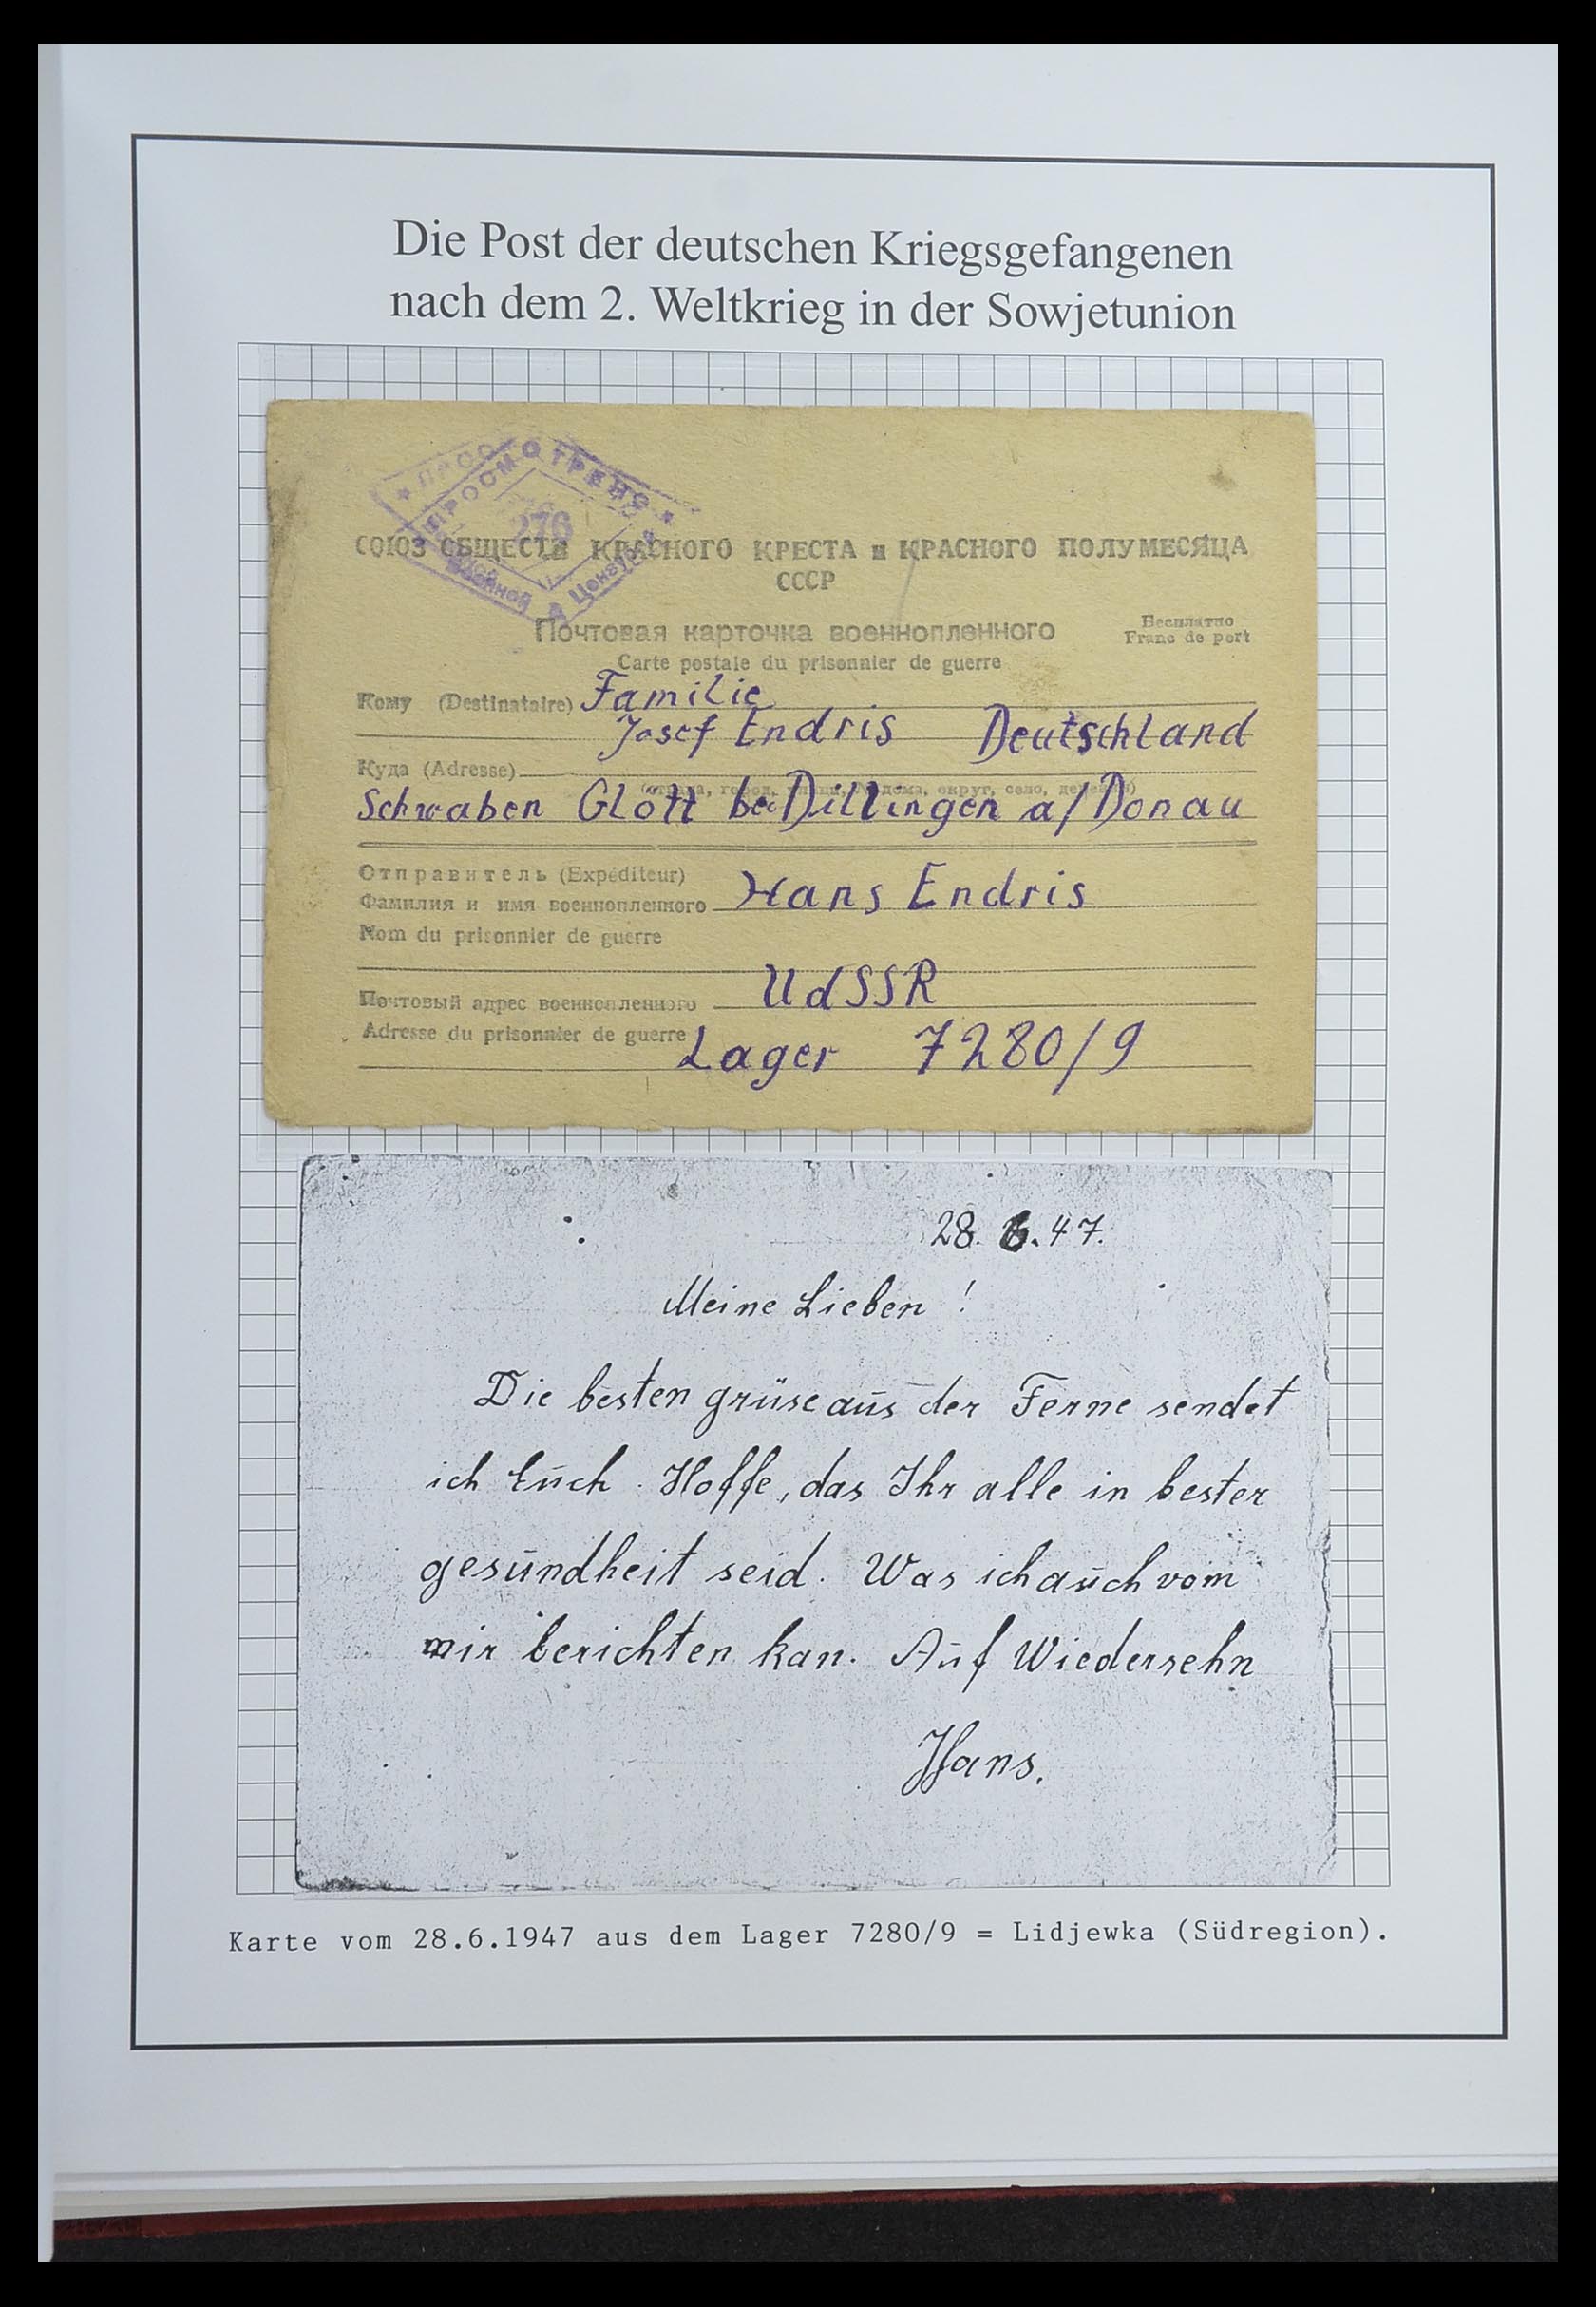 Die Post der deutschen Kriegsgefangenen
nach dem 2. Weltkrieg in der Sowjetunion
ПРОСМОТРЕНО
276
Военной Цензурой
СОЮЗ ОБЩЕСТВ КРАСНОГО КРЕСТА и КРАСНОГО ПОЛУМЕСЯЦА
СССР
Почтовая карточка военнопленного
Бесплатно
Franc de port
Carte postale du prisonnier de guerre
Кому (Destinataire) Familie
Josef Endris Deutschland
Куда (Adresse)
(страна, город, улица, № дома, округ, село, деревня)
Schwaben Glött bei Dillingen a/Donau
Отправитель (Expéditeur)
Фамилия и имя военнопленного Hans Endris
Nom du prisonnier de guerre
Почтовый адрес военнопленного UdSSR
Adresse du prisonnier de guerre Lager 7280/9
28. 6. 47.
Meine Lieben !
Die besten grüse aus der Ferne sendet
ich Euch. Hoffe, das Ihr alle in bester
gesundheit seid. Was ich auch vom
mir berichten kan. Auf Wiedersehn
Hans.
Karte vom 28.6.1947 aus dem Lager 7280/9 = Lidjewka (Südregion).